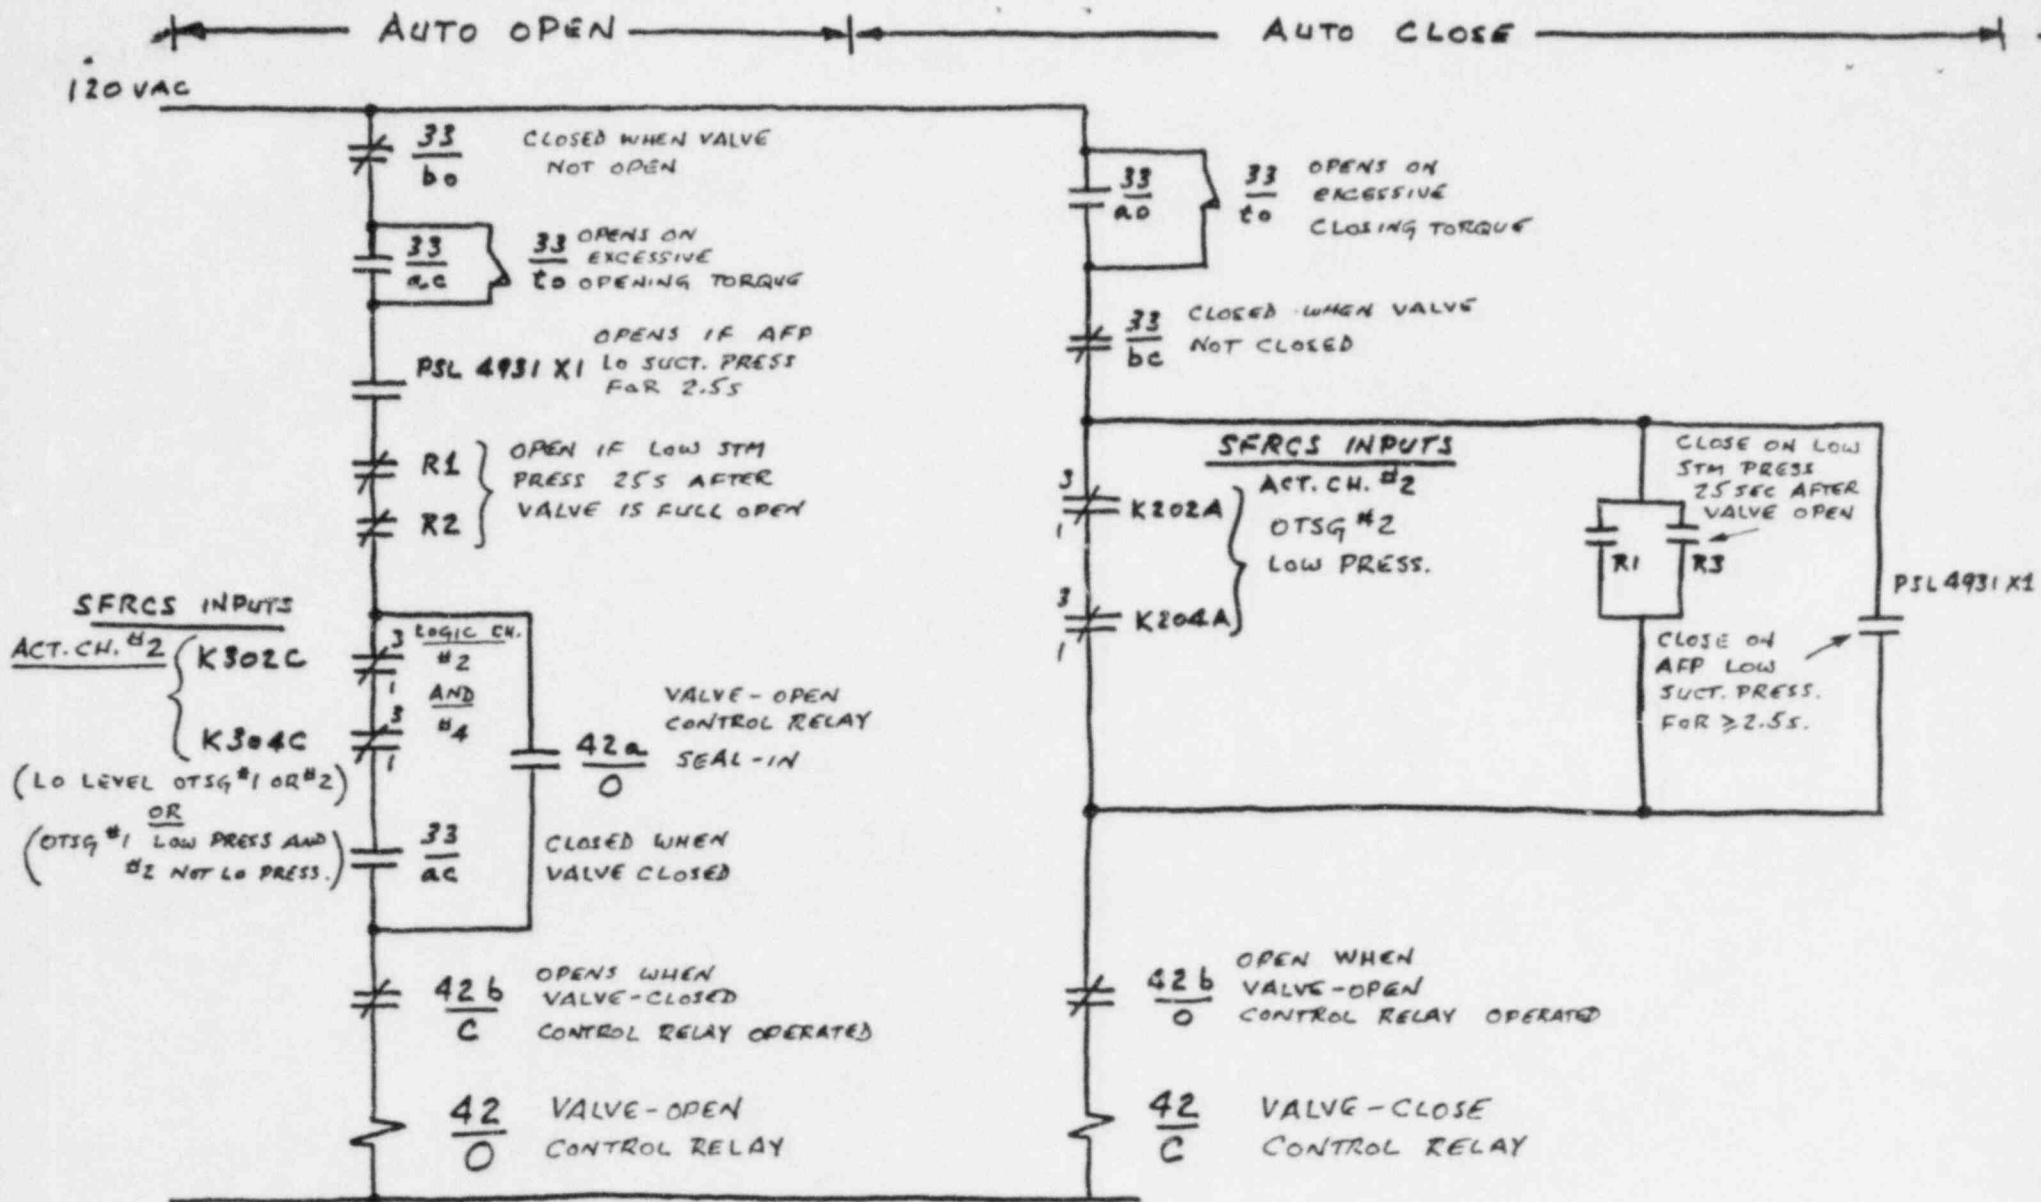 AUTO OPEN
AUTO CLOSE
120 VAC
33
bo
CLOSED WHEN VALVE
NOT OPEN
33
ac
33
to
OPENS ON
EXCESSIVE
OPENING TORQUE
PSL 4931 X1
OPENS IF AFP
LO SUCT. PRESS
FOR 2.5s
R1
R2
OPEN IF LOW STM
PRESS 25s AFTER
VALVE IS FULL OPEN
SFRCS INPUTS
ACT. CH. #2
K302C
K304C
3
1
3
1
LOGIC CH.
#2
AND
#4
(LO LEVEL OTSG #1 OR #2)
OR
(OTSG #1 LOW PRESS AND
#2 NOT LO PRESS.)
42a
O
VALVE-OPEN
CONTROL RELAY
SEAL-IN
33
ac
CLOSED WHEN
VALVE CLOSED
42b
C
OPENS WHEN
VALVE-CLOSED
CONTROL RELAY OPERATED
42
O
VALVE-OPEN
CONTROL RELAY
33
ao
33
to
OPENS ON
EXCESSIVE
CLOSING TORQUE
33
bc
CLOSED WHEN VALVE
NOT CLOSED
SFRCS INPUTS
ACT. CH. #2
OTSG #2
LOW PRESS.
3
1
K202A
3
1
K204A
CLOSE ON LOW
STM PRESS
25 SEC AFTER
VALVE OPEN
R1
R3
PSL 4931 X1
CLOSE ON
AFP LOW
SUCT. PRESS.
FOR ≥ 2.5s.
42b
O
OPEN WHEN
VALVE-OPEN
CONTROL RELAY OPERATED
42
C
VALVE-CLOSE
CONTROL RELAY